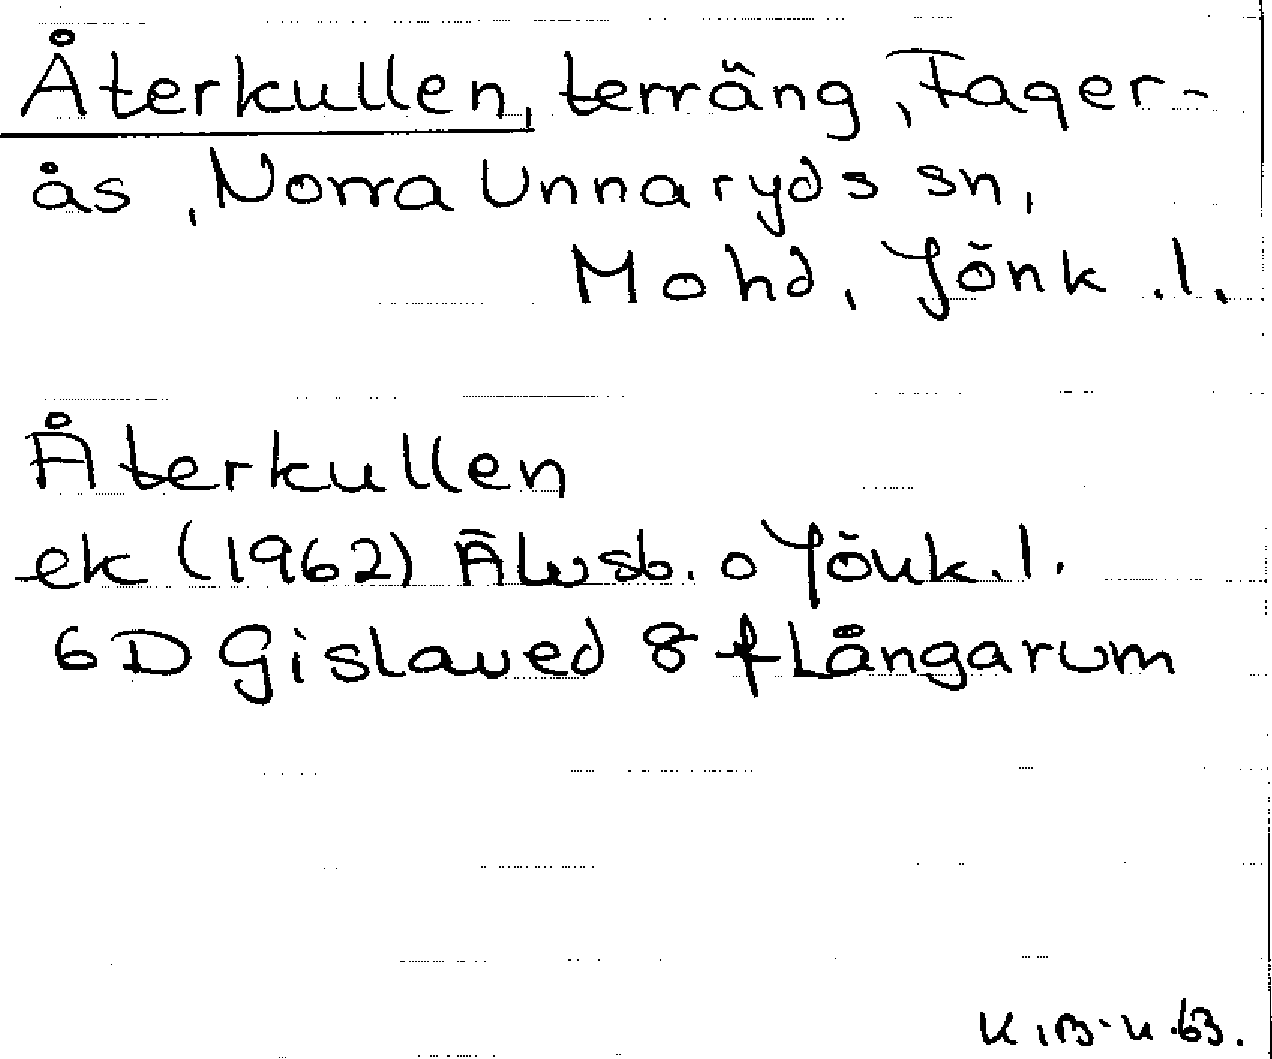 Återkullen, terräng, Fager-
ås, Norra Unnaryds sn,
Mohd, Jönk.l.
Återkullen
ek (1962) Älvsb. o Jönk.l.
6D Gislaved 8 f Långarum